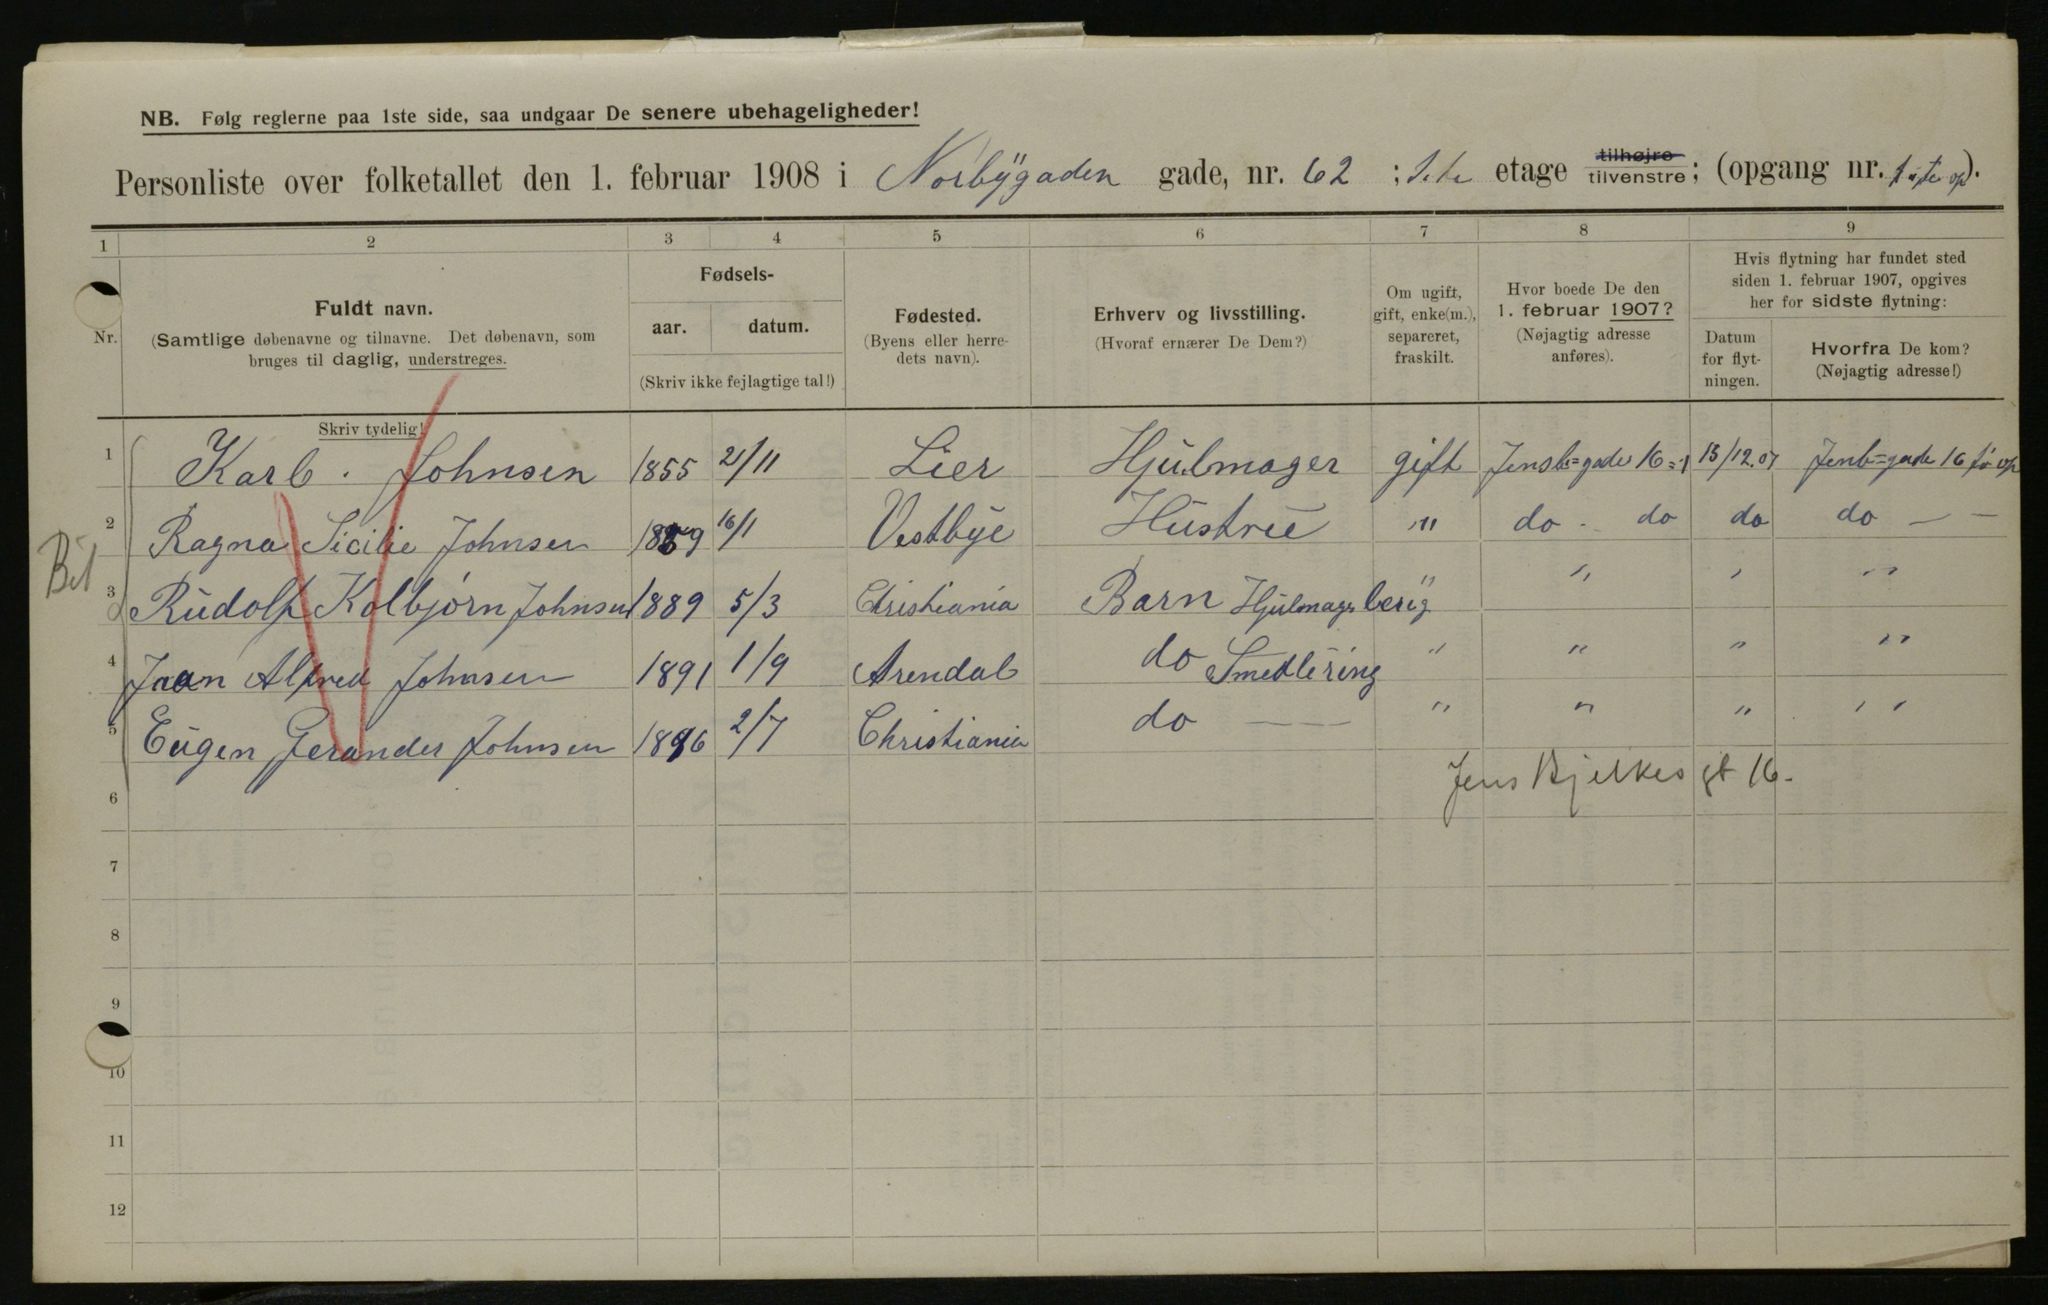 NB. Følg reglerne paa 1ste side, saa undgaar De senere ubehageligheder!
Personliste over folketallet den 1. februar 1908 i Norbÿgaden gade, nr. 62 ; 1.ste etage tilhøjre tilvenstre; (opgang nr. op).
1 2 3 4 5 6 7 8 9
Nr.
Fuldt navn.
(Samtlige døbenavne og tilnavne. Det døbenavn, som
bruges til daglig, understreges.
Skriv tydelig!
Fødsels-
aar. datum.
(Skriv ikke fejlagtige tal!)
Fødested.
(Byens eller herre-
dets navn).
Erhverv og livsstilling.
(Hvoraf ernærer De Dem?)
Om ugift,
gift, enke(m.),
separeret,
fraskilt.
Hvor boede De den
1. februar 1907?
(Nøjagtig adresse
anføres).
Hvis flytning har fundet sted
siden 1. februar 1907, opgives
her for sidste flytning:
Datum
for flyt-
ningen.
Hvorfra De kom?
(Nøjagtig adresse!)
1 Karl . Johnsen 1855 21/11 Lier Hjulmager gift Jensb=gade 16 =1 13/12.07 Jenb=gade 16 op
2 Ragna Sicilie Johnsen 1859 16/1 Vestbÿe Hustrue " do . do do do — —
Bil
3 Rudolf Kolbjørn Johnsen 1889 5/3 Christiania Barn Hjulmagerlæring " " " "
4 Jaan Alfred Johnsen 1891 1/9 Arendal do Smedlæring " " " "
5 Eugen Gerander Johnsen 1896 2/7 Christiania do — " " " "
Jens Bjelkes gt 16.
6
7
8
9
10
11
12